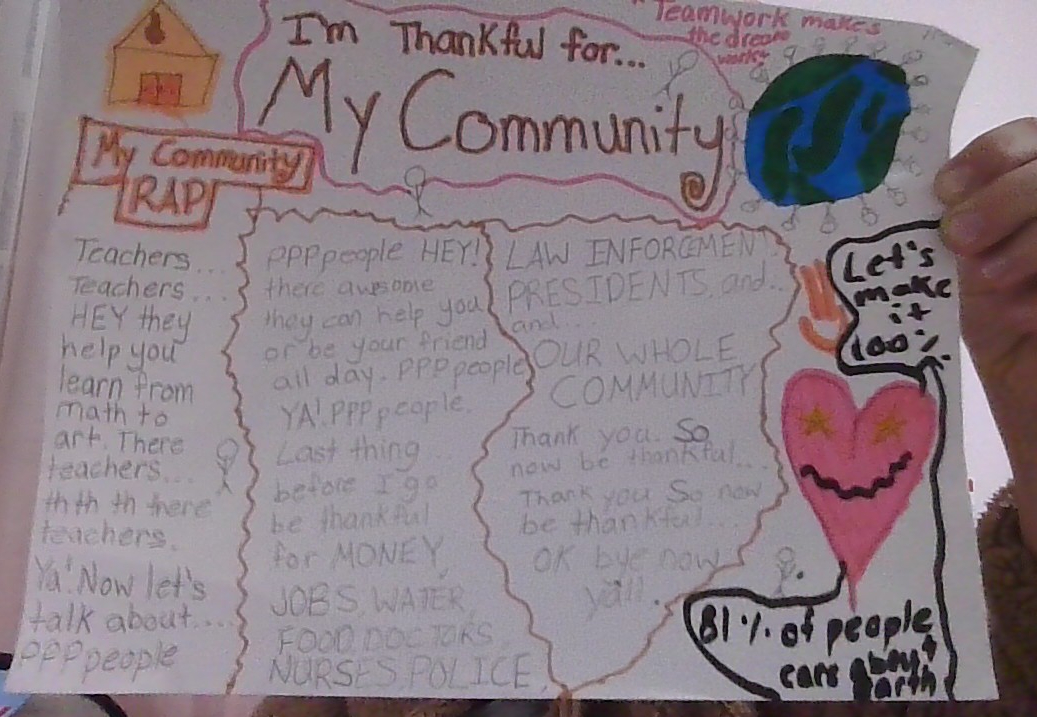 "Teamwork makes
the dream
work"
I'm Thankful for...
My Community
My Community
RAP
Teachers...
Teachers...
HEY they
help you
learn from
math to
art. There
teachers...
th th th there
teachers.
Ya! Now let's
talk about....
PPP people
PPP people HEY!
there awsome
they can help you
or be your friend
all day. PPP people
YA! PPP people.
Last thing...
before I go
be thankful
for MONEY,
JOBS, WATER,
FOOD, DOCTORS
NURSES, POLICE,
LAW INFORCEMENT,
PRESIDENTS, and...
and...
OUR WHOLE
COMMUNITY
Thank you. So
now be thankful...
Thank you So now
be thankful...
OK bye now
yall.
Let's
make
it
100%.
81% of people
care about
earth